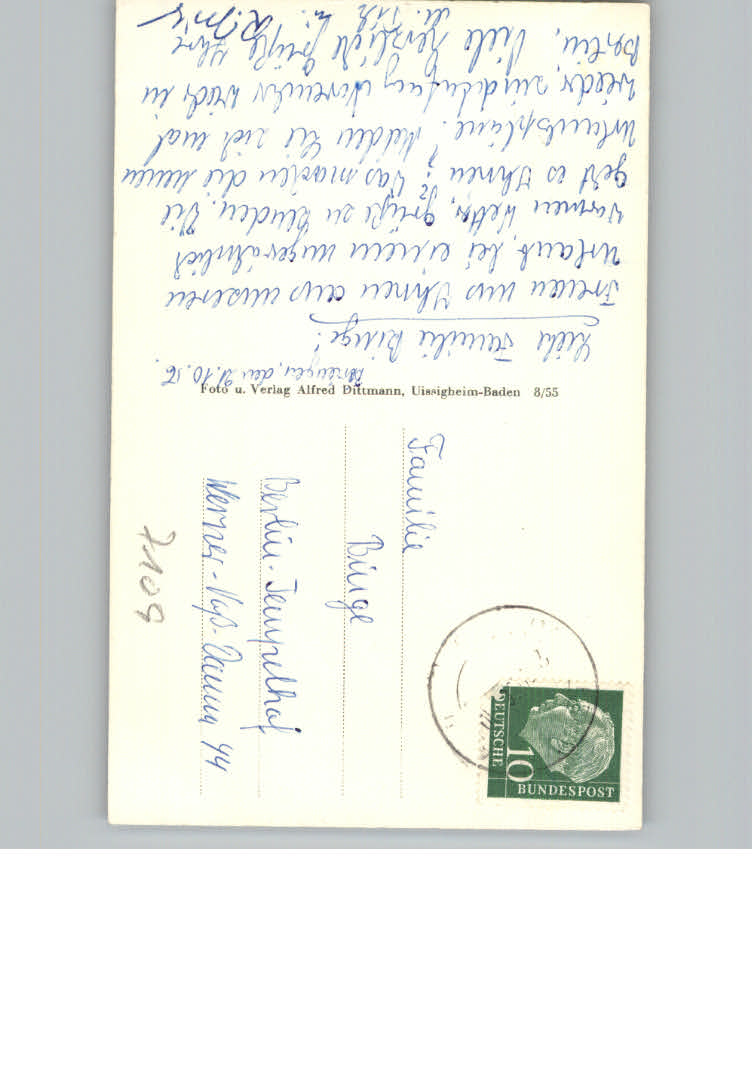 21.10.56.
Liebe Familie Binge!
Freuen uns Ihnen aus unseren
Urlaub, bei einem ungewöhnlich
warmen Wetter, Grüße zu senden. Wie
geht es Ihnen? Was machen die neuen
Urlaubspläne. Melden Sie sich mal
wieder, sind Anfang November wieder in
Berlin. Viele herzliche Grüße Ihre
Foto u. Verlag Alfred Dittmann, Uissigheim-Baden 8/55
Familie
Binge
Berlin-Tempelhof
Werner-Voß-Damm 44
DEUTSCHE
BUNDESPOST
10
7109